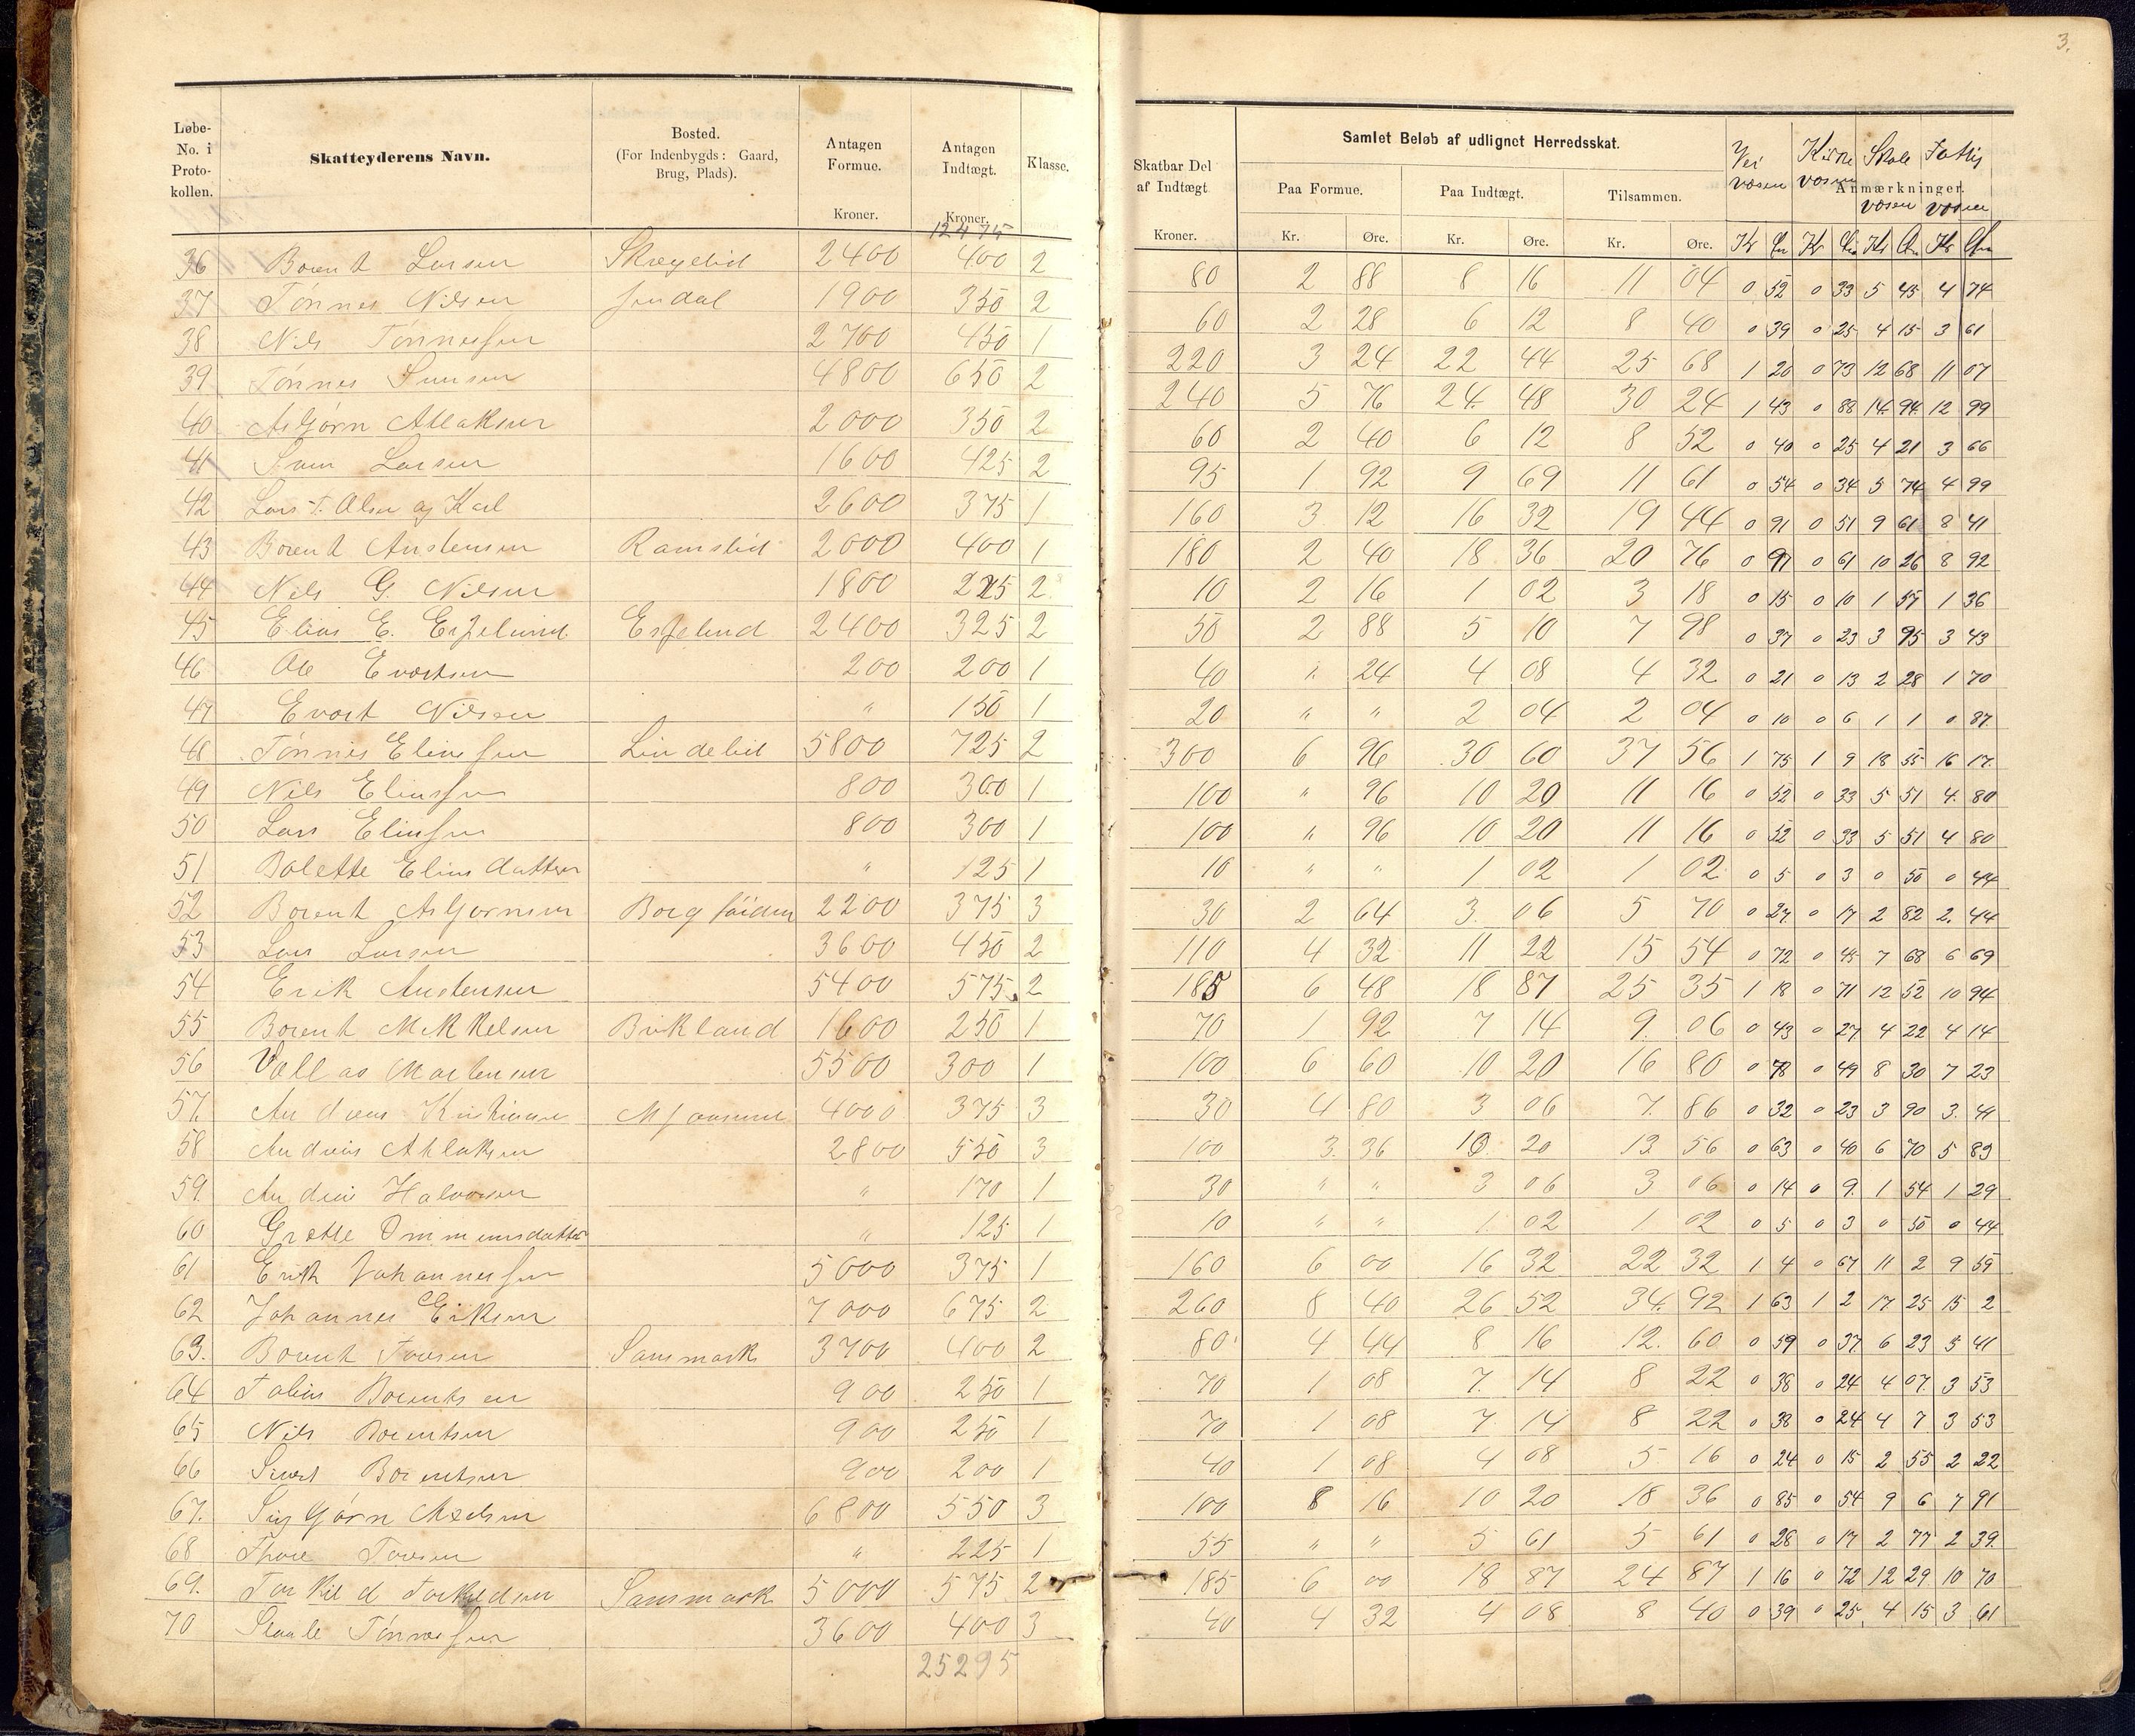 3.
Løbe-No. i Protokollen. | Skatteyderens Navn. | Bosted. (For Indenbygds: Gaard, Brug, Plads). | Antagen Formue. Kroner. | Antagen Indtægt. Kroner. | Klasse. | Skatbar Del af Indtægt Kroner. | Samlet Beløb af udlignet Herredsskat. Paa Formue. Kr. Øre. | Paa Indtægt. Kr. Øre. | Tilsammen. Kr. Øre. | Anmærkninger. Vei væsen Kirke væsen Skole væsen Fattig væsen
12475
36 Borent Larsen | 2400 | 400 | 2 | 80 | 2 88 | 8 16 | 11 04 | 0 52 | 0 33 | 5 45 | 4 74
37 Tønnes Nilsen | 1900 | 350 | 2 | 60 | 2 28 | 6 12 | 8 40 | 0 39 | 0 25 | 4 15 | 3 61
38 Nils Tønnessen | 2700 | 450 | 1 | 220 | 3 24 | 22 44 | 25 68 | 1 20 | 0 73 | 12 68 | 11 07
39 Tønnes | 4800 | 650 | 2 | 240 | 5 76 | 24 48 | 30 24 | 1 43 | 0 88 | 14 94 | 12 99
40 Asbjørn Atlaksen | 2000 | 350 | 2 | 60 | 2 40 | 6 12 | 8 52 | 0 40 | 0 25 | 4 21 | 3 66
41 Larsen | 1600 | 425 | 2 | 95 | 1 92 | 9 69 | 11 61 | 0 54 | 0 34 | 5 74 | 4 99
42 Lars T. Olsen og Karl | 2600 | 375 | 1 | 160 | 3 12 | 16 32 | 19 44 | 0 91 | 0 51 | 9 61 | 8 41
43 Borent Austensen | Ramslid | 2000 | 400 | 1 | 180 | 2 40 | 18 36 | 20 76 | 0 97 | 0 61 | 10 26 | 8 92
44 Nils G. Nilsen | 1800 | 225 | 2 | 10 | 2 16 | 1 02 | 3 18 | 0 15 | 0 10 | 1 57 | 1 36
45 Elias E. | 2400 | 325 | 2 | 50 | 2 88 | 5 10 | 7 98 | 0 37 | 0 23 | 3 95 | 3 43
46 Ole Evertsen | 200 | 200 | 1 | 40 | " 24 | 4 08 | 4 32 | 0 21 | 0 13 | 2 28 | 1 70
47 Evert Nilsen | " | 150 | 1 | 20 | " " | 2 04 | 2 04 | 0 10 | 0 6 | 1 1 | 0 87
48 Tønnes Eliassen | Lindelid | 5800 | 725 | 2 | 300 | 6 96 | 30 60 | 37 56 | 1 75 | 1 9 | 18 55 | 16 17
49 Nils Eliassen | 800 | 300 | 1 | 100 | " 96 | 10 20 | 11 16 | 0 52 | 0 33 | 5 51 | 4 80
50 Lars Eliassen | 800 | 300 | 1 | 100 | " 96 | 10 20 | 11 16 | 0 52 | 0 33 | 5 51 | 4 80
51 Bolette Eliasdatter | " | 125 | 1 | 10 | " " | 1 02 | 1 02 | 0 5 | 0 3 | 0 50 | 0 44
52 Borent Asbjørnsen | 2200 | 375 | 3 | 30 | 2 64 | 3 06 | 5 70 | 0 27 | 0 17 | 2 82 | 2 44
53 Lars Larsen | 3600 | 450 | 2 | 110 | 4 32 | 11 22 | 15 54 | 0 72 | 0 45 | 7 68 | 6 69
54 Erik Austensen | 5400 | 575 | 2 | 185 | 6 48 | 18 87 | 25 35 | 1 18 | 0 71 | 12 52 | 10 94
55 Borent Mikkelsen | Birkland | 1600 | 250 | 1 | 70 | 1 92 | 7 14 | 9 06 | 0 43 | 0 27 | 4 22 | 4 14
56 Martensen | 5500 | 300 | 1 | 100 | 6 60 | 10 20 | 16 80 | 0 78 | 0 49 | 8 30 | 7 23
57 Andreas | 4000 | 375 | 3 | 30 | 4 80 | 3 06 | 7 86 | 0 32 | 0 23 | 3 90 | 3 41
58 Andreas Atlaksen | 2800 | 550 | 3 | 100 | 3 36 | 10 20 | 13 56 | 0 63 | 0 40 | 6 70 | 5 83
59 Andreas Halvorsen | " | 170 | 1 | 30 | " " | 3 06 | 3 06 | 0 14 | 0 9 | 1 54 | 1 29
60 Grætte Ommunsdatter | " | 125 | 1 | 10 | " " | 1 02 | 1 02 | 0 5 | 0 3 | 0 50 | 0 44
61 Erik Johannessen | 5000 | 375 | 1 | 160 | 6 00 | 16 32 | 22 32 | 1 4 | 0 67 | 11 2 | 9 59
62 Johannes Eriksen | 7000 | 675 | 2 | 260 | 8 40 | 26 52 | 34 92 | 1 63 | 1 2 | 17 25 | 15 2
63 Borent Toresen | Sansmark | 3700 | 400 | 2 | 80 | 4 44 | 8 16 | 12 60 | 0 59 | 0 37 | 6 23 | 5 41
64 Tobias Borentsen | 900 | 250 | 1 | 70 | 1 08 | 7 14 | 8 22 | 0 38 | 0 24 | 4 07 | 3 53
65 Nils Borentsen | 900 | 250 | 1 | 70 | 1 08 | 7 14 | 8 22 | 0 38 | 0 24 | 4 7 | 3 53
66 Sivert Borentsen | 900 | 200 | 1 | 40 | 1 08 | 4 08 | 5 16 | 0 24 | 0 15 | 2 55 | 2 22
67 Sigbjørn Axelsen | 6800 | 550 | 3 | 100 | 8 16 | 10 20 | 18 36 | 0 85 | 0 54 | 9 6 | 7 91
68 Thore Toresen | " | 225 | 1 | 55 | " " | 5 61 | 5 61 | 0 28 | 0 17 | 2 77 | 2 39
69 Torkild Torkildsen | Sansmark | 5000 | 575 | 2 | 185 | 6 00 | 18 87 | 24 87 | 1 16 | 0 72 | 12 29 | 10 70
70 Staale Tønnessen | 3600 | 400 | 3 | 40 | 4 32 | 4 08 | 8 40 | 0 39 | 0 25 | 4 15 | 3 61
25295